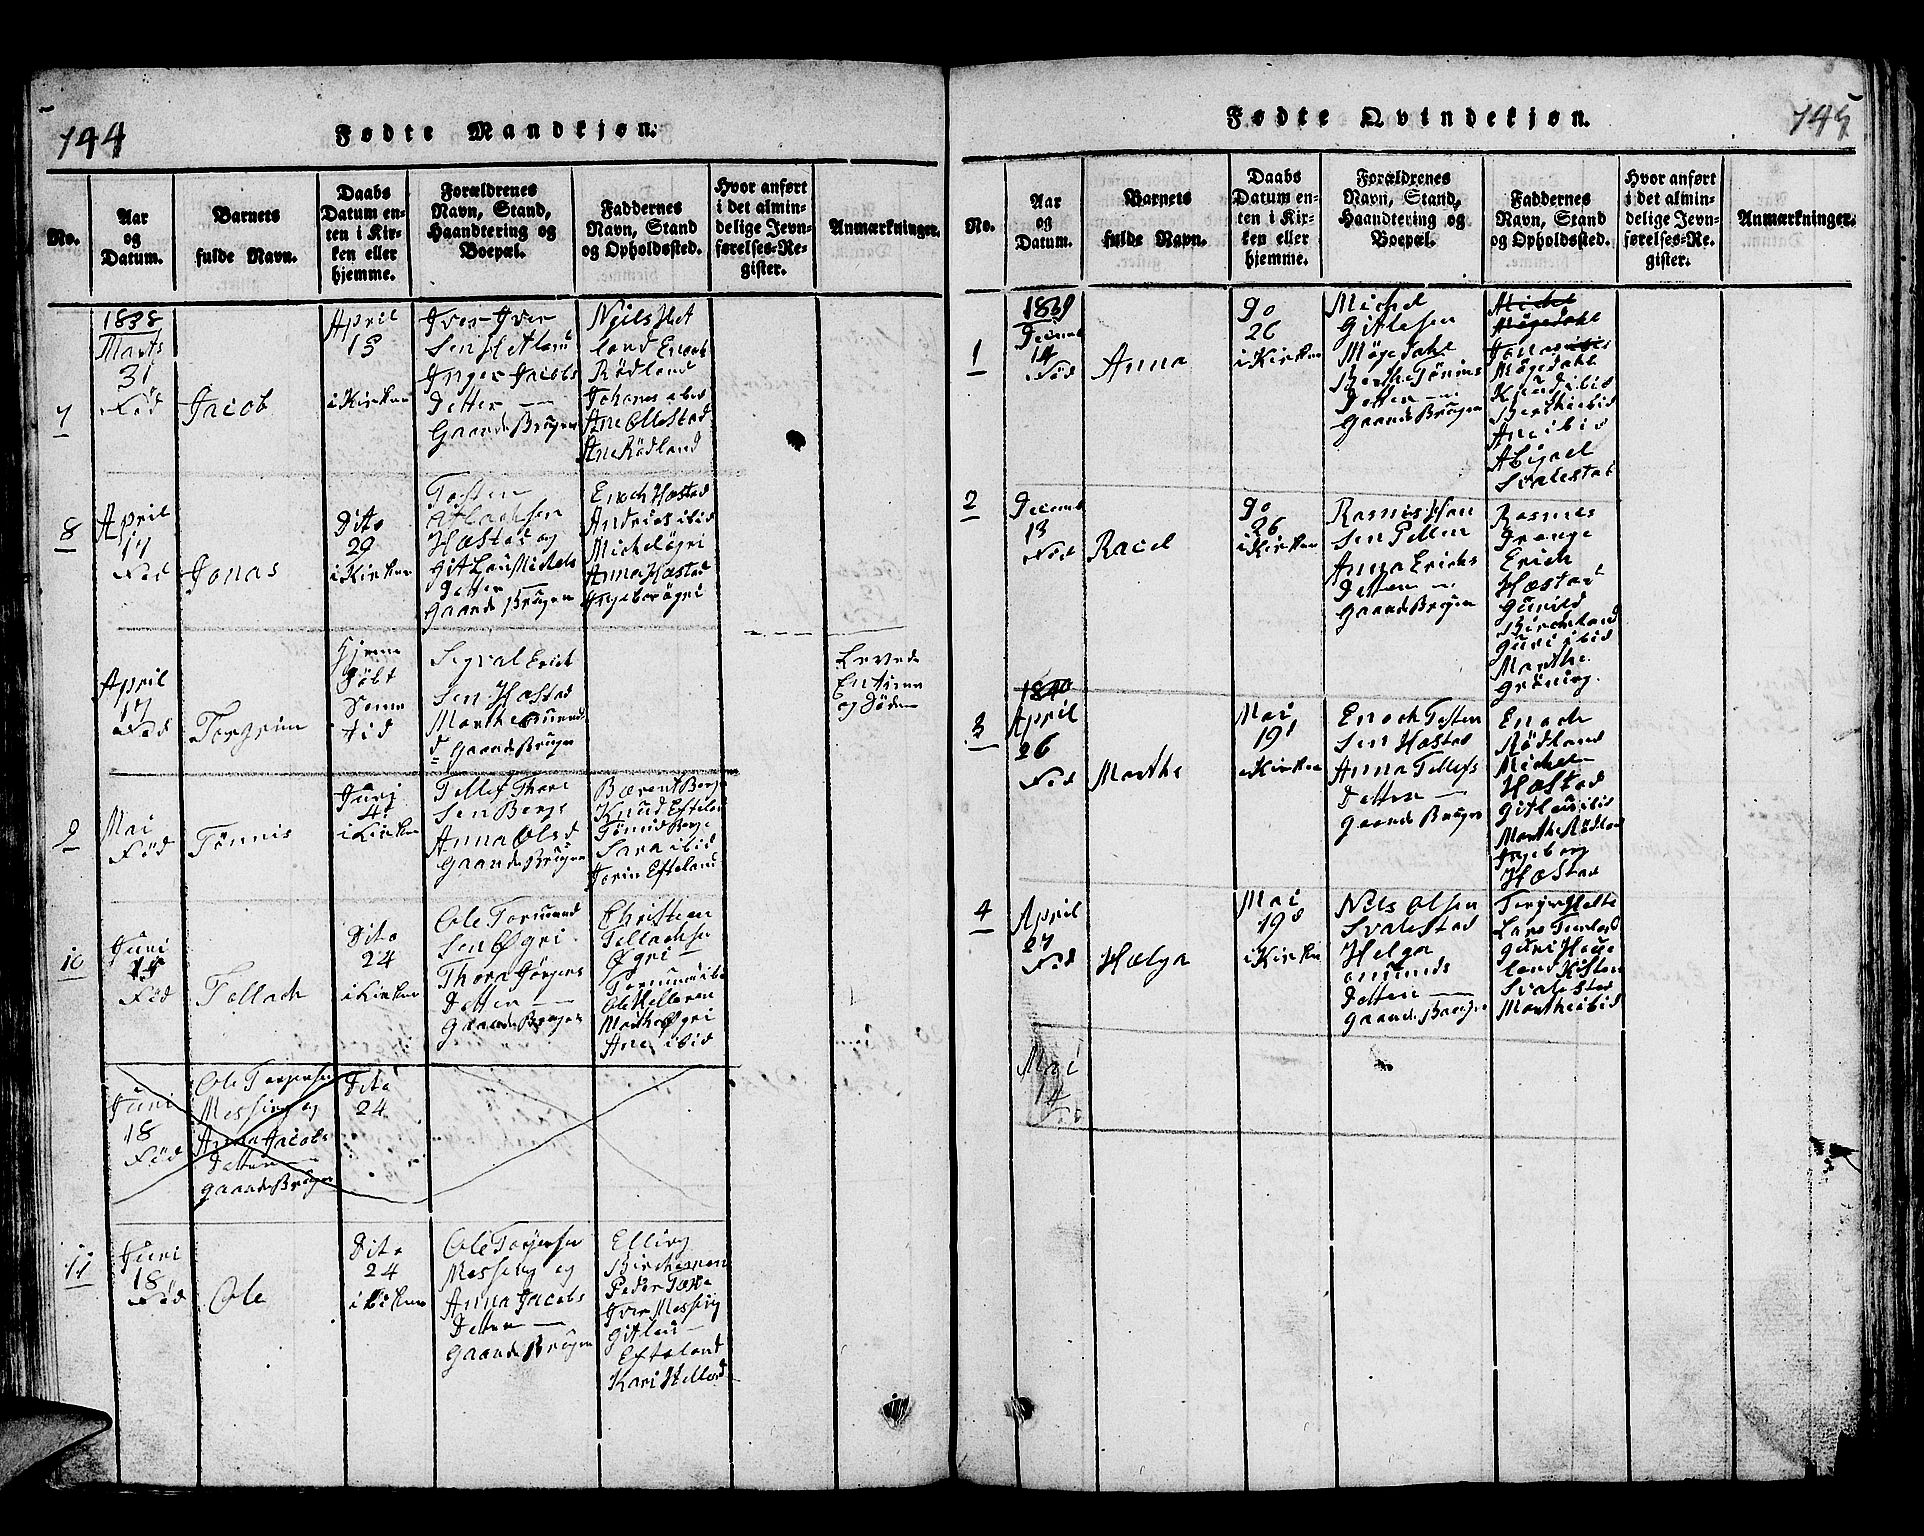 144
Fødte Mandkjøn.
No.
Aar
og
Datum.
Barnets
fulde Navn.
Daabs
Datum en-
ten i Kir-
ken eller
hjemme.
Forældrenes
Navn, Stand,
Haandtering og
Boepæl.
Faddernes
Navn, Stand
og Opholdssted.
Hvor anført
i det almin-
delige Jevn-
førelses-Re-
gister.
Anmærkninger.
7
1838
Marts
31
Fød
Jacob
April
13
i Kirken
Iver Iver
Sen Hetland
Inger Jacobs
Detter
Gaardt Brugen
Neils Het
land Enoch
Rødland
Johanes ibid
Ane Ollestad
Ane Rødland
8
April
17
Fød
Jonas
Dito
29
i Kirken
Tosten
Hæstad og
Detter
Gaards Brugen
Enoch Hæstad
Andrias ibid
Michel øgri
Anna Hæstad
Ingebor øgri
April
17
Fød
Torgrim
Hjeme
Døbt
Same
tid
Sigval Erich
Sen Hæstad
Marthe
Gaards Brugen
Levede
En time
og Døde
9
Mai
Fød
Tønnis
Juni
4
i Kirken
Tellef Thore
Sen Berge
Anna Ols d
Gaards Brugen
Bærent Berge
Knud Eftelan
Tønnis Berge
Sara ibid
Jorin Efteland
10
Juni
15
Fød
Tollach
Dito
24
i Kirken
Ole Tormund
Sen Øgri
Thora Jørgens
Detter
Gaards Brugen
Christien
Tollachsen
Øgri
Tormund ibid
Ole Helleren
Marthe Øgri
Ane ibid
Juni
18
Fød
Ole Torgersen
Messing og
Anna Jacobs
Detter
Gaards Brugen
Dito
24
11
Juni
18
Fød
Ole
Dito
24
i Kirken
Ole Torgersen
Messing og
Anna Jacobs
Detter
Gaards Brugen
Elling
Birchemoen
Peder
Iver Messing
Gitlau
Efteland
Kari Helland
145
Fødte Qvindekjøn.
No.
Aar
og
Datum.
Barnets
fulde Navn.
Daabs
Datum en-
ten i Kir-
ken eller
hjemme.
Forældrenes
Navn, Stand,
Haandtering og
Boepæl.
Faddernes
Navn, Stand
og Opholdssted.
Hvor anført
i det almin-
delige Jevn-
førelses-Re-
gister.
Anmærkninger.
1
1839
Decemb
14
Fød
Anna
do
26
i Kirken
Michel
Gitlesen
Møgedahl
Berthe Tønnis
Detter
Gaards Brugen
Michel
Møgedahl
Jonas ibis
Møgedahl
Knud ibid
Berthe ibid
Ane ibid
Abigael
Svalestad
2
Decemb
13
Fød
Raciel
do
26
i Kirken
Rasmis Han
Sen Pellen
Anna Erichs
Detter
Gaards Brugen
Rasmes
Drange
Erich
Hæstad
Gunild
Birchland
Guri ibid
Marthe
Grøning
3
1840
April
26
Fød
Marthe
Mai
19
i Kirken
Enoch Tosten
Sen Hæstad
Anna Tellefs
Detter
Gaards Bruger
Enoch
Rødland
Michel
Hæstad
Gitlau ibid
Marthe Rødlan
Ingeborg
Hæstad
4
April
27
Fød
Hælga
Mai
19
i Kirken
Nils Olsen
Svalestad
Helga
Omunds
Detter
Gaards Bruger
Guri Haue
land Kisten
Svalestad
Marthe ibid
Mai
14